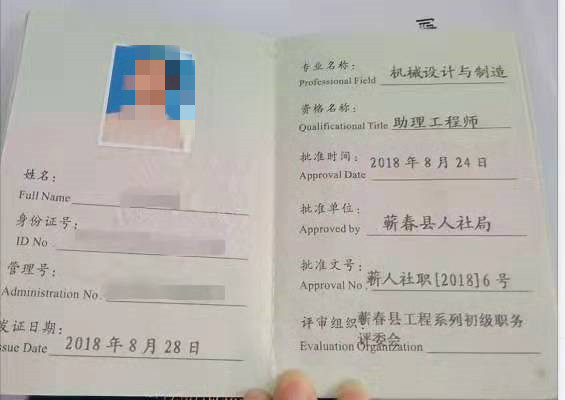 姓名:
Full Name
身份证号:
ID No
管理号:
Administration No.
发证日期:
ssue Date 2018年8月28日
专业名称: 机械设计与制造
Professional Field
资格名称:
Qualificational Title 助理工程师
批准时间: 2018年8月24日
Approval Date
批准单位:
Approved by 蕲春县人社局
批准文号:
Approval No. 蕲人社职[2018]6号
评审组织: 蕲春县工程系列初级职务
评委会
Evaluation Organization